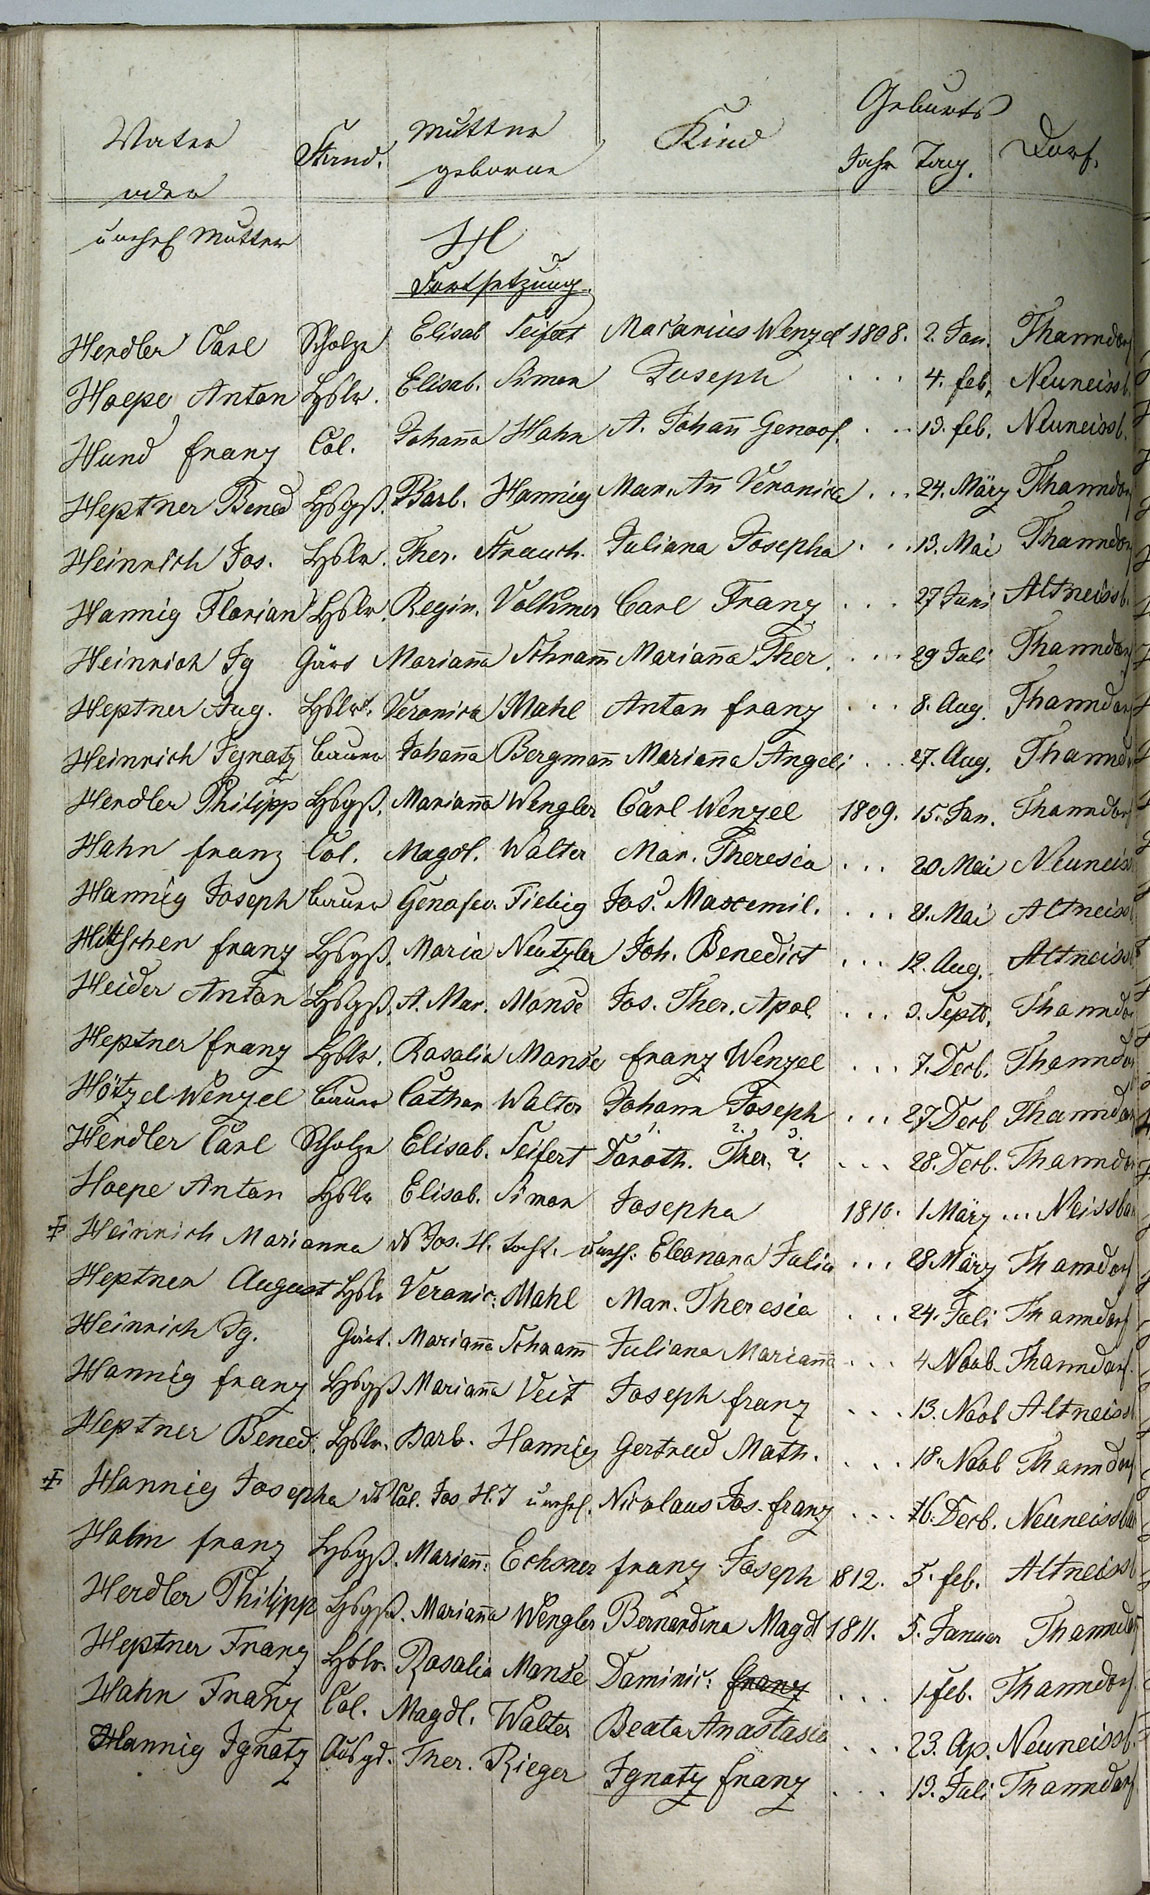 Vater Stand. Mutter Kind Geburts Dorf.
oder geborne Jahr Tag.
unehel Mutter
H
Fortsetzung.
Herdler Carl Scholze Elisab Seifert Macarius Wenzel 1808. 2. Jan. Thanndorf
Hoepe Anton Hslr. Elisab. Simon Joseph ... 4. feb. Neuneissb.
Hund franz Col. Johana Hahn A. Johan Genoof. ... 13. feb. Neuneissb.
Heptner Bened Hsgß. Barb. Hannig Mar. An Veronica ... 24. März Thanndorf
Heinrich Jos. Hslr. Ther. Strauch. Juliana Josepha ... 13. Mai Thanndorf
Hannig Florian Hslr. Regin. Volkmer Carl Franz ... 27 Juni Altneissb.
Heinrich Ig Gärs Mariana Schram Mariana Ther. ... 29 Juli Thanndorf
Heptner Aug. Hslr. Veronica Mahl Anton franz ... 8. Aug. Thanndorf
Heinrich Ignatz bauer Johana Bergman Mariana Angeli ... 27. Aug. Thannd
Herdler Philipp Hsgß. Mariana Wengler Carl Wenzel 1809. 15. Jan. Thanndorf
Hahn franz Col. Magdl. Walter Mar. Theresia ... 20 Mai Neuneiss
Hannig Joseph bauer Genofev. Fiebig Jos. Maxemil. ... 21. Mai Altneiss
Hittschen franz Hsgß. Maria Neutzler Joh. Benedict ... 12. Aug. Altneiss
Heider Anton Hsgß. A. Mar. Monse Jos. Ther. Apol. ... 3. Septb. Thanndo
Heptner franz Hslr. Rosalia Monse franz Wenzel ... 7. Decb. Thanndor
Hötzel Wenzel bauer Cathar Walter Johann Joseph ... 27 Decb Thanndor
Herdler Carl Scholze Elisab. Seifert Doroth. Ther. 28. Decb. Thanndor
Hoepe Anton Hslr Elisab. Simon Josepha 1810. 1 März ... Neissba
Heinrich Marianna Jos. H. Tocht. unehl. Eleonora Julia ... 28 März Thanndorf
Heptner August Hslr Veronic: Mahl Mar. Theresia ... 24. Juli Thanndorf
Heinrich Ig. Gärt. Mariana Schram Juliana Mariana ... 4 Novb. Thanndorf.
Hannig franz Hsgß Mariana Veit Joseph franz ... 13. Novb Altneiss
Heptner Bened. Hslr. Barb. Hannig Gertrud Math. ... 18. Novb Thanndorf
Hannig Josepha Col. Jos. H. T unehel. Nicolaus Jos. franz ... 16. Decb. Neuneissba
Hahn franz Hsgß. Marian: Echsner franz Joseph 1812. 5. feb. Altneissb
Herdler Philipp Hsgß. Mariana Wengler Bernardina Magdl 1811. 5. Januar Thanndor
Heptner Franz Hslr. Rosalia Monse Dominic: franz ... 1. feb. Thanndorf
Hahn Franz Col. Magdl. Walter Beata Anastasia ... 23. Ap. Neuneissb.
Hannig Ignatz Ausgd. Ther. Rieger Ignatz franz ... 13. Juli Thanndorf